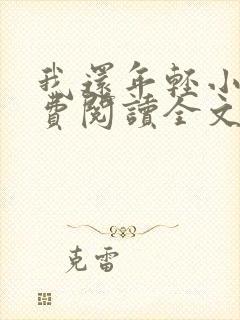 我還年輕小
費閱讀全文
克雷